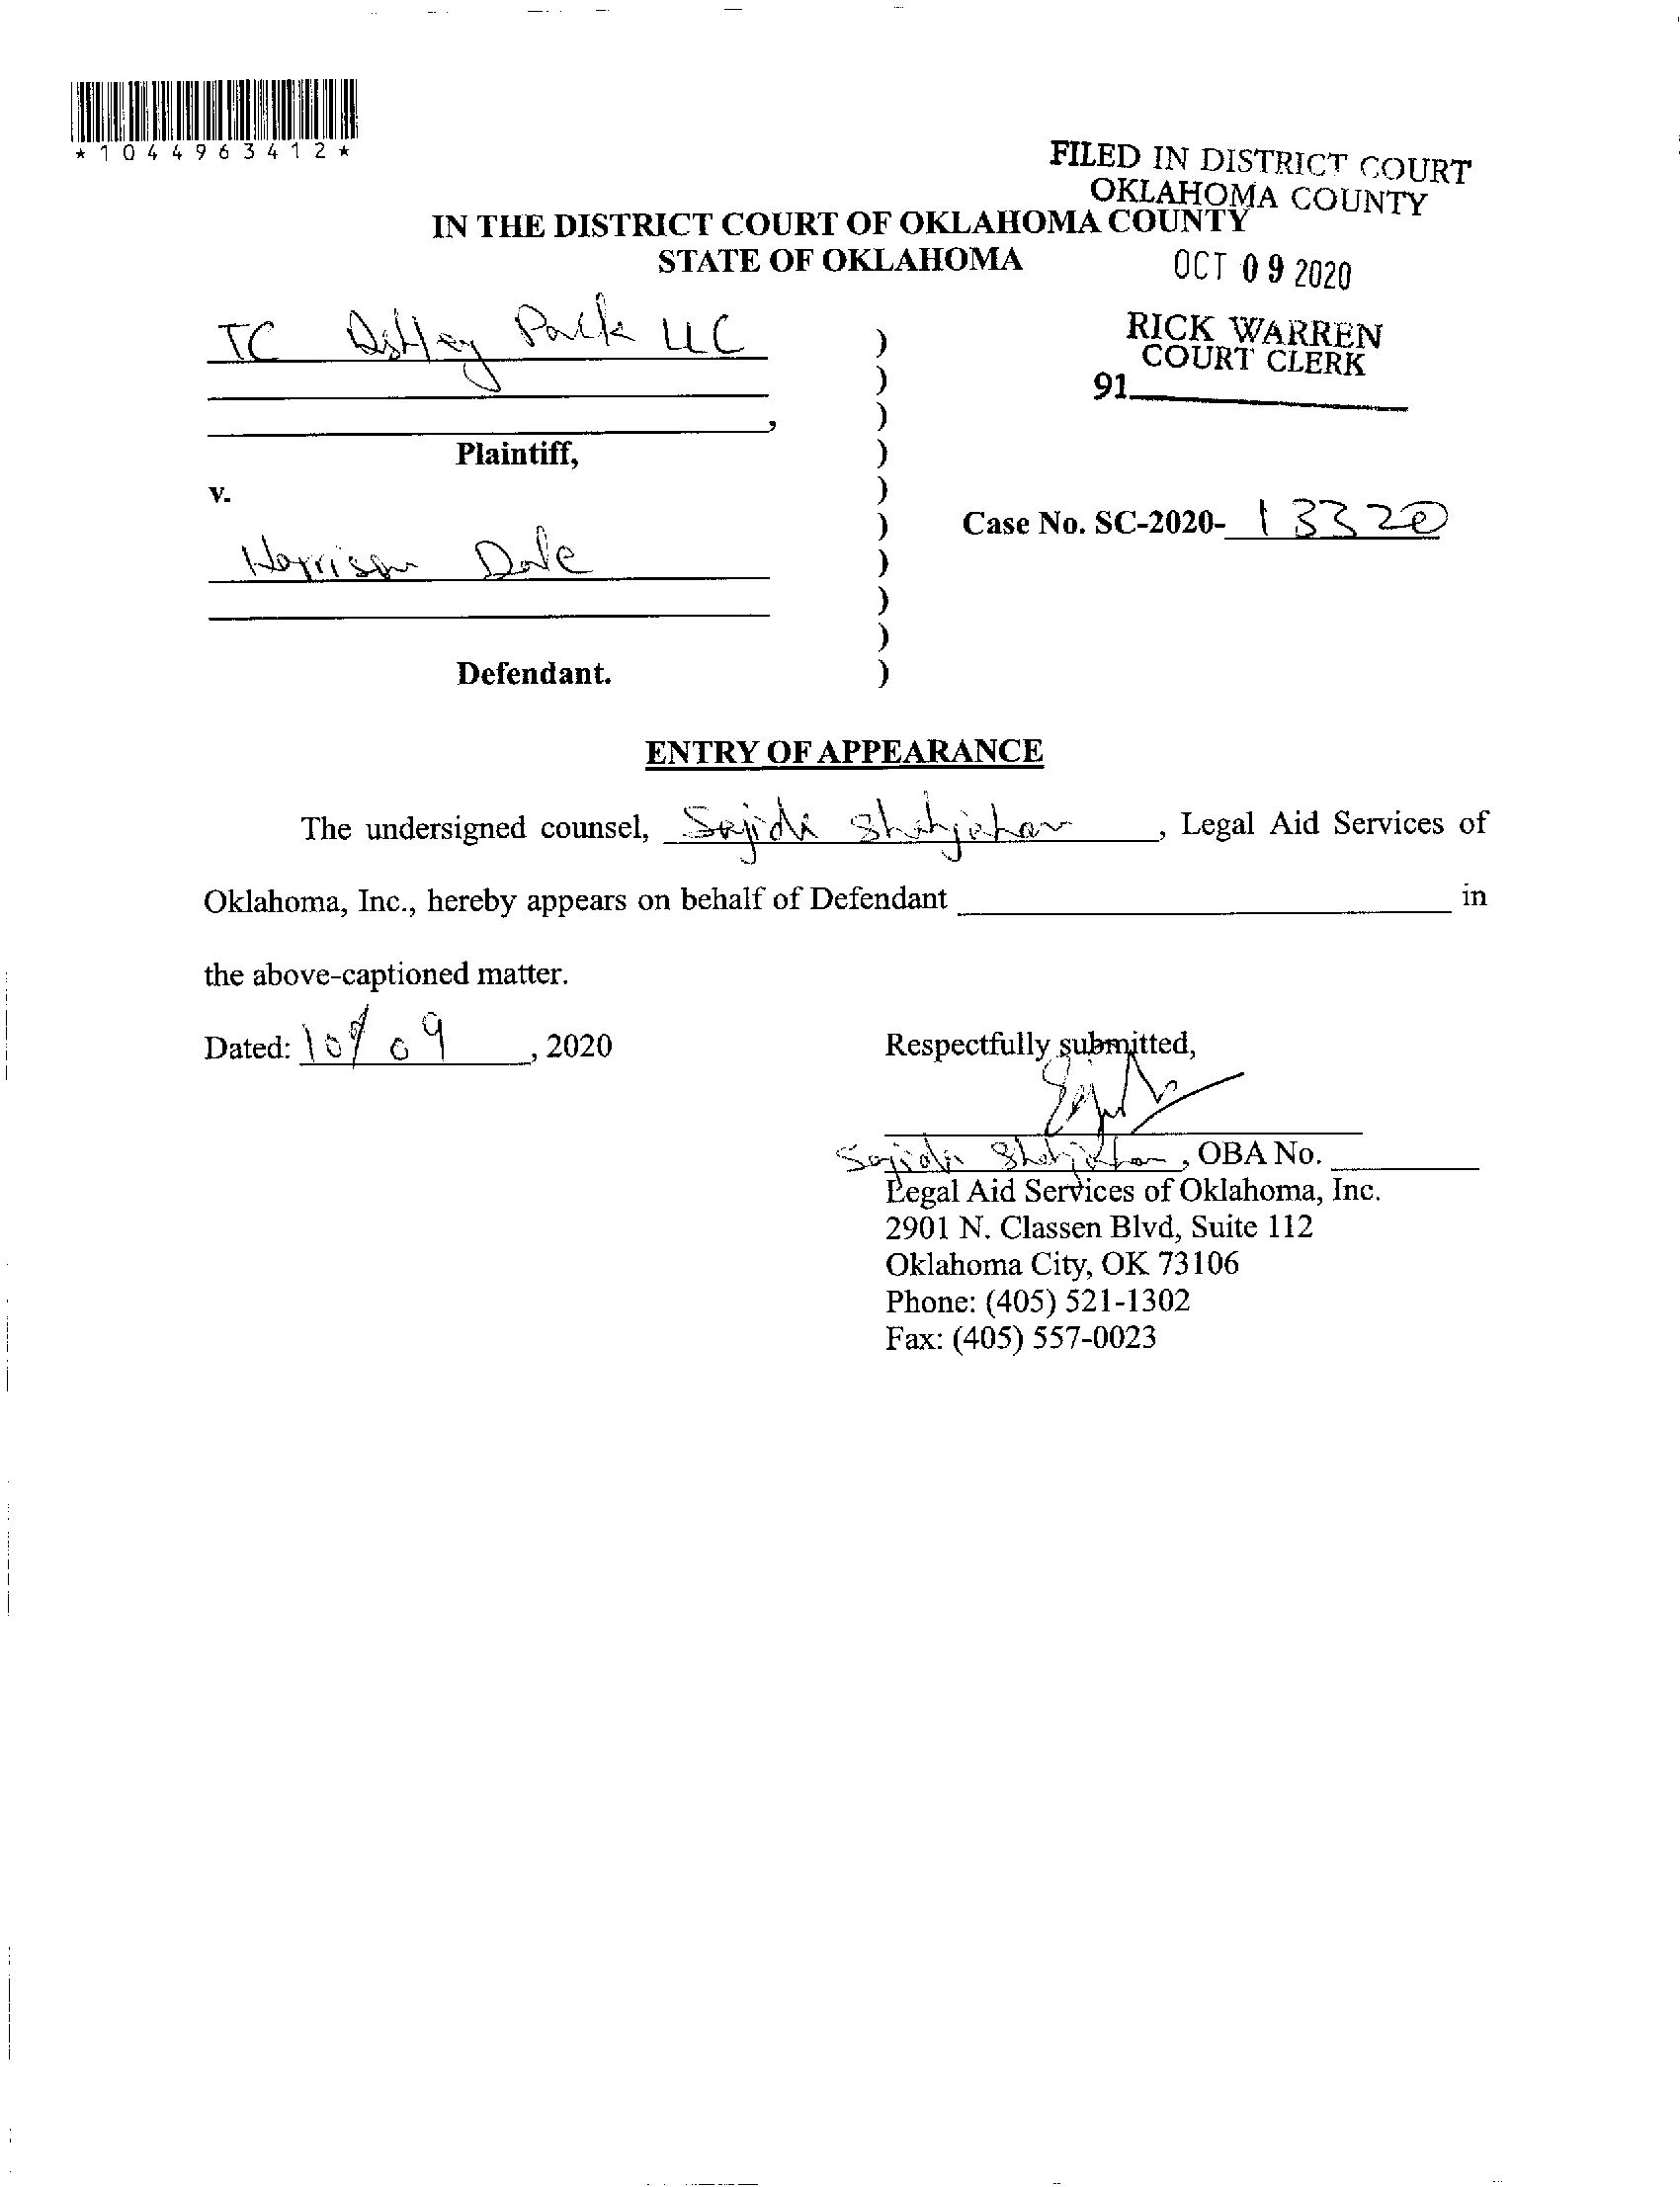 *1044963412*
FILED IN DISTRICT COURT
OKLAHOMA COUNTY
IN THE DISTRICT COURT OF OKLAHOMA COUNTY
STATE OF OKLAHOMA
OCT 09 2020
RICK WARREN
COURT CLERK
91
TC Park LLC
,
Plaintiff,
v.
Case No. SC-2020- 13320
Harrison Dale
Defendant.
ENTRY OF APPEARANCE
The undersigned counsel, Sajida Shahjahan, Legal Aid Services of
Oklahoma, Inc., hereby appears on behalf of Defendant in
the above-captioned matter.
Dated: 10/09, 2020
Respectfully submitted,
Sajida Shahjahan, OBA No.
Legal Aid Services of Oklahoma, Inc.
2901 N. Classen Blvd, Suite 112
Oklahoma City, OK 73106
Phone: (405) 521-1302
Fax: (405) 557-0023